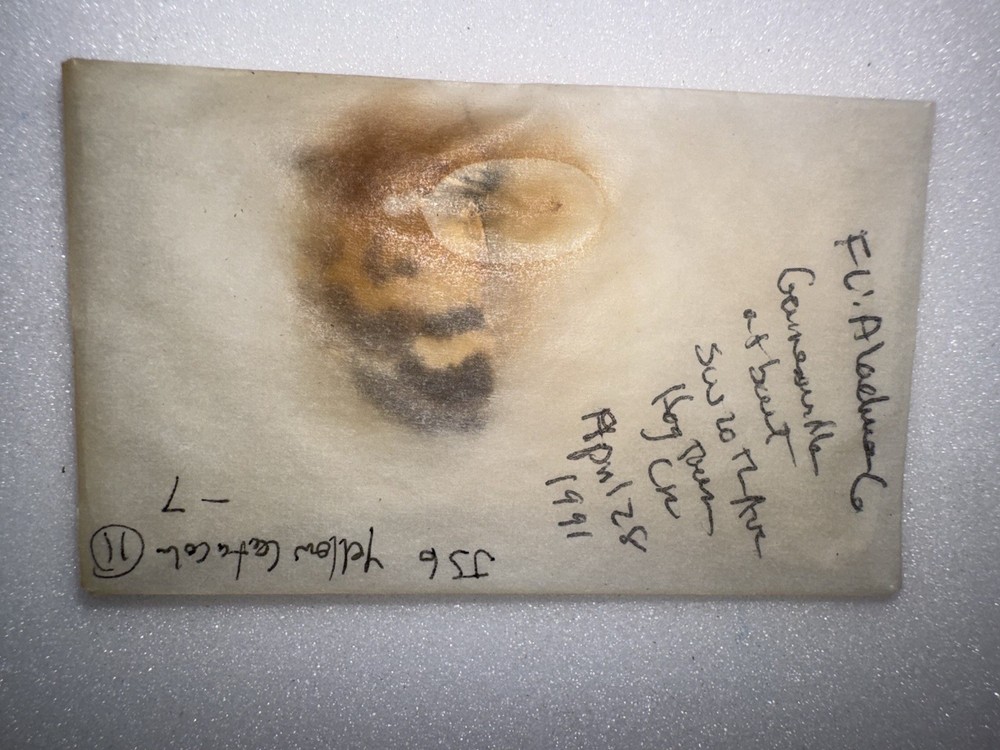 FL: Alachua Co
Gainesville
at bait
SW 20th Ave
Hogtown
Crk
April 28
1991
JSG Yellow Catocala
-7
11